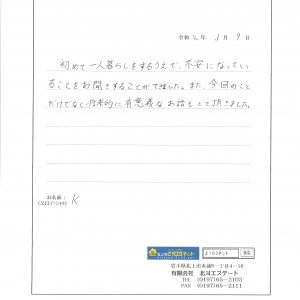 令和2年3月9日
初めて一人暮らしをするうえで、不安になってい
ることをお聞きすることができました。また、今回のこと
だけでなく将来的に有意義なお話もして頂きました。
お名前： K
(又はイニシャル)
北上市2103ネット
2103ネット 検索
岩手県北上市本通り一丁目4-16
有限会社 北斗エステート
TEL (0197)65-2103
FAX (0197)65-2111